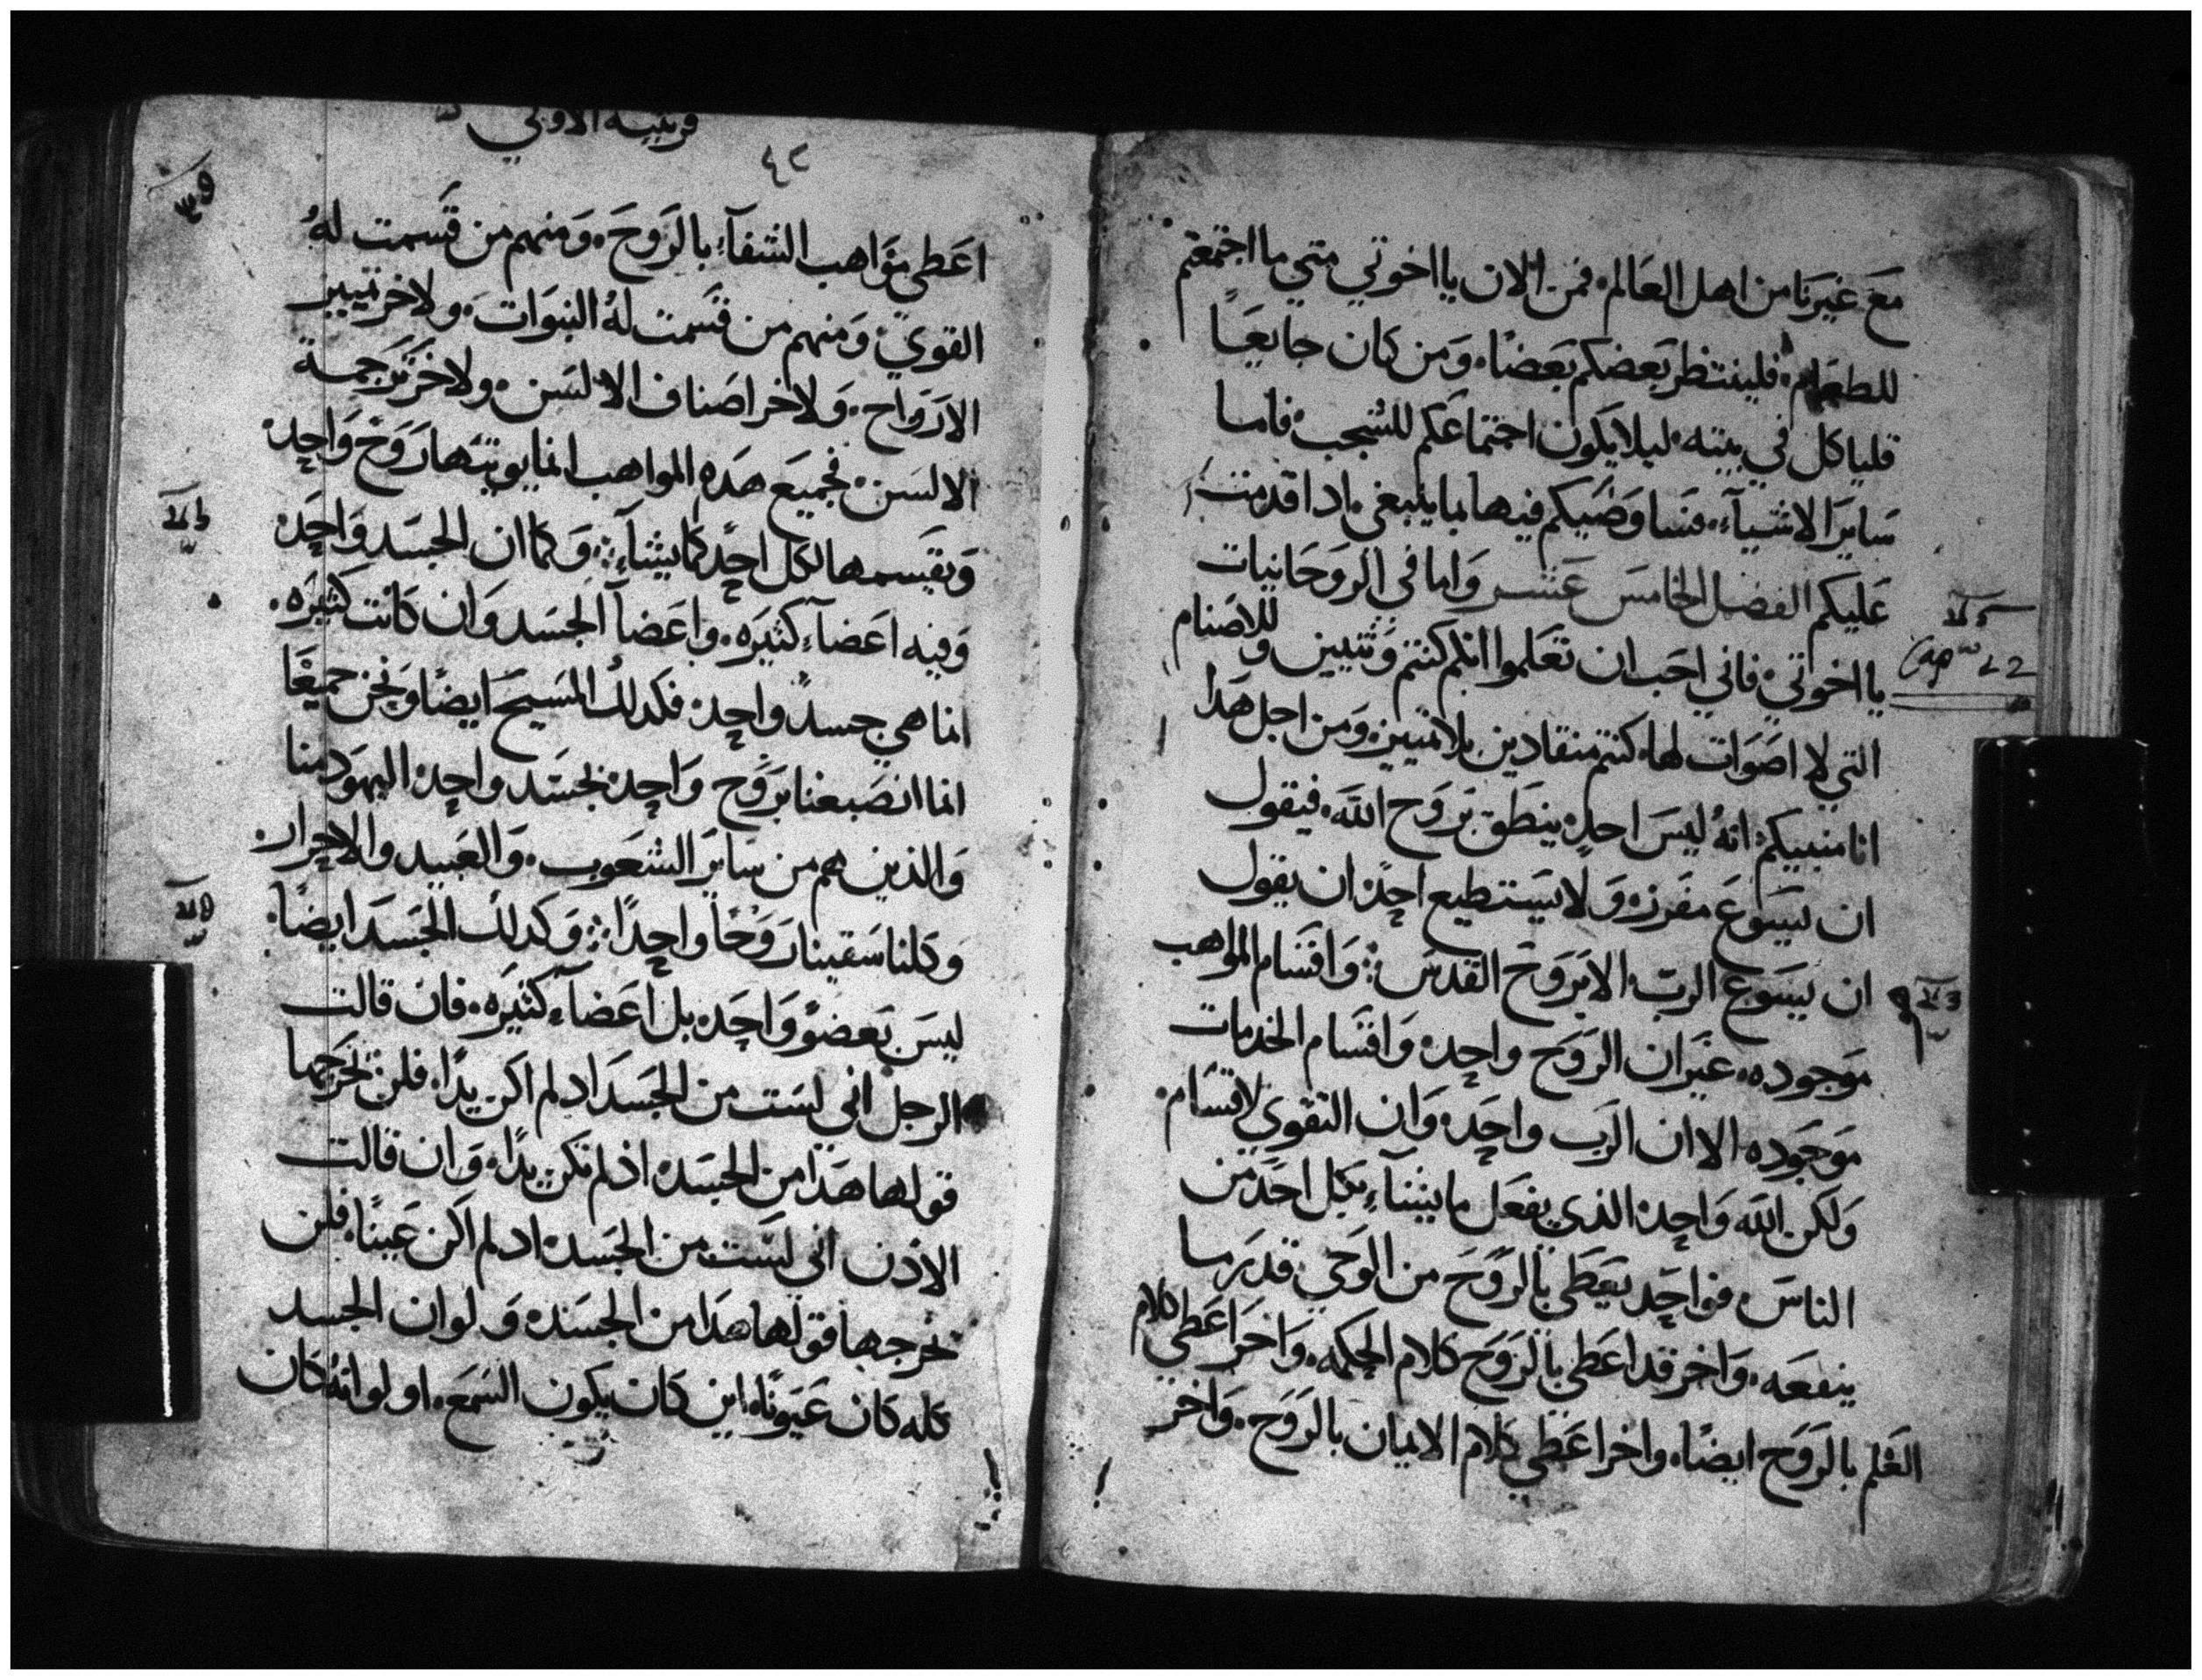 مع غيرنا من اهل العالم. فمن الان يا اخوتي متي ما اجتمعتم
للطعام. فلينتظر بعضكم بعضا. ومن كان جايعًا
فلياكل في بيته. ليلا يكون اجتماعكم للشجب. فاما
ساير الاشيآء. فسا وصيكم فيها بما ينبغي. ادا قدمت
عليكم الفصل الخامس عشر واما في الروحانيات
يا اخوتي. فاني احب ان تعلموا انكم كنتم وثنيين وللاصنام
التي لا اصوات لها. كنتم منقادين بلا تمييز. ومن اجل هدا
انا منبيكم. انهُ ليس احدٍ ينطق بروح الله. فيقول
ان يسوع مفرزه ولا يستطيع احدٍ ان يقول
ان يسوع الرب. الا بروح القدس: واقسام المواهب
موجوده. غير ان الروح واحده واقسام الخدمات
موجوده الا ان الرب واحده وان القوي لاقسام.
ولكن الله واحده الذي يفعل ما يشآء بكل احد من
الناس. فواحد يعطي بالروح من الوحي قدر ما
ينفعه. واخر قد اعطي بالروح كلام الحكمه. واخر اعطي كلام
العلم بالروح ايضا. واخر اعطي كلام الايمان بالروح. واخر
Cap 12
قرنتيه الاولي
٤٢
اعطي مواهب الشفآء بالروح. ومنهم من قسمت لهُ
القوي. ومنهم من قسمت لهُ النبوات. ولاخر تمييز
الارواح. ولاخر اصناف الالسن. ولاخر ترجمة
الالسن. فجميع هده المواهب انما يوتيها روح واحده
ويقسمها لكل احدٍ كما يشآء: وكما ان الجسد واحده
وفيه اعضآء كثيره. واعضآ الجسد وان كانت كثيره.
انما هي جسدٌ واحده فكدلك المسيح ايضًا ونحن جميعًا
انما انصبغنا بروح واحده لجسد واحده اليهود منا
والذين هم من ساير الشعوب. والعبيد والاحرار.
وكلنا سقينا روحًا واحدًا: وكدلك الجسد ايضًا.
ليس بعضوٌ واحده بل اعضآء كثيره. فان قالت
الرجل اني لست من الجسد ادلم اكن يدًا. فلن تخرجها
قولها هدا من الجسده اذلم تكن يدًا. وان قالت
الاذن اني لست من الجسده ادلم اكن عينًا. فلن
تخرجها قولها هدا من الجسده ولو ان الجسد
كله كان عيونًا. اين كان يكون السمع. او لو انهُ كان